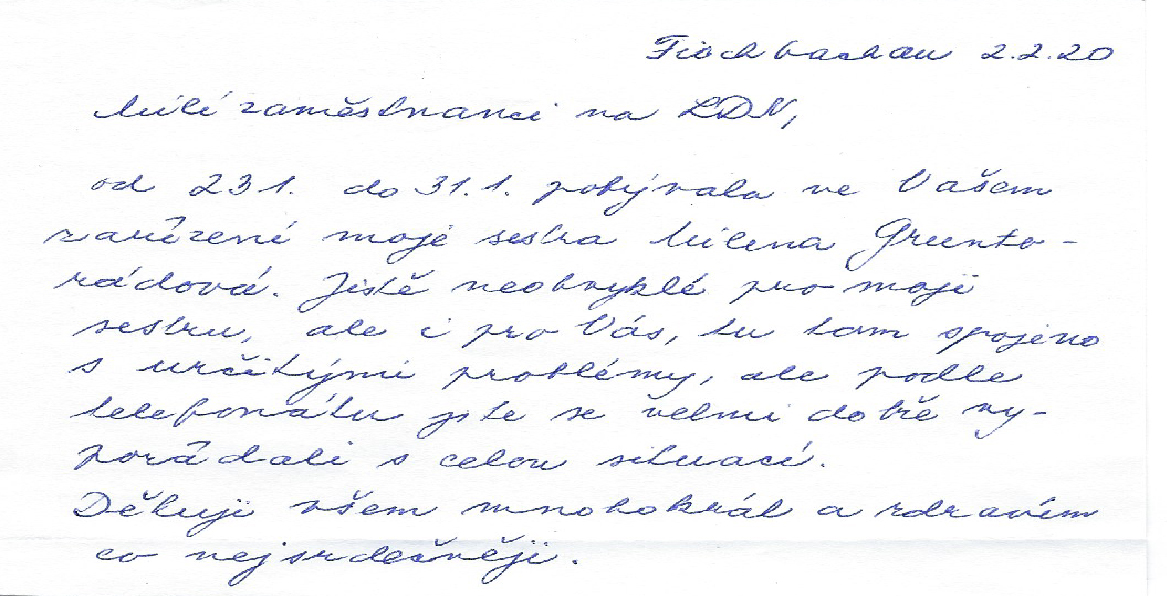 Fischbachau 2.2.20
Milí zaměstnanci na LDN,
od 23 1. do 31.1. pobývala ve Vašem
zařízení moje sestra Milena Grunto-
rádová. Jistě neobvyklé pro moji
sestru, ale i pro Vás, tu tam spojeno
s určitými problémy, ale podle
telefonátu jste se velmi dobře vy-
pořádali s celou situací.
Děkuji všem mnohokrát a zdravím
co nejsrdečněji.